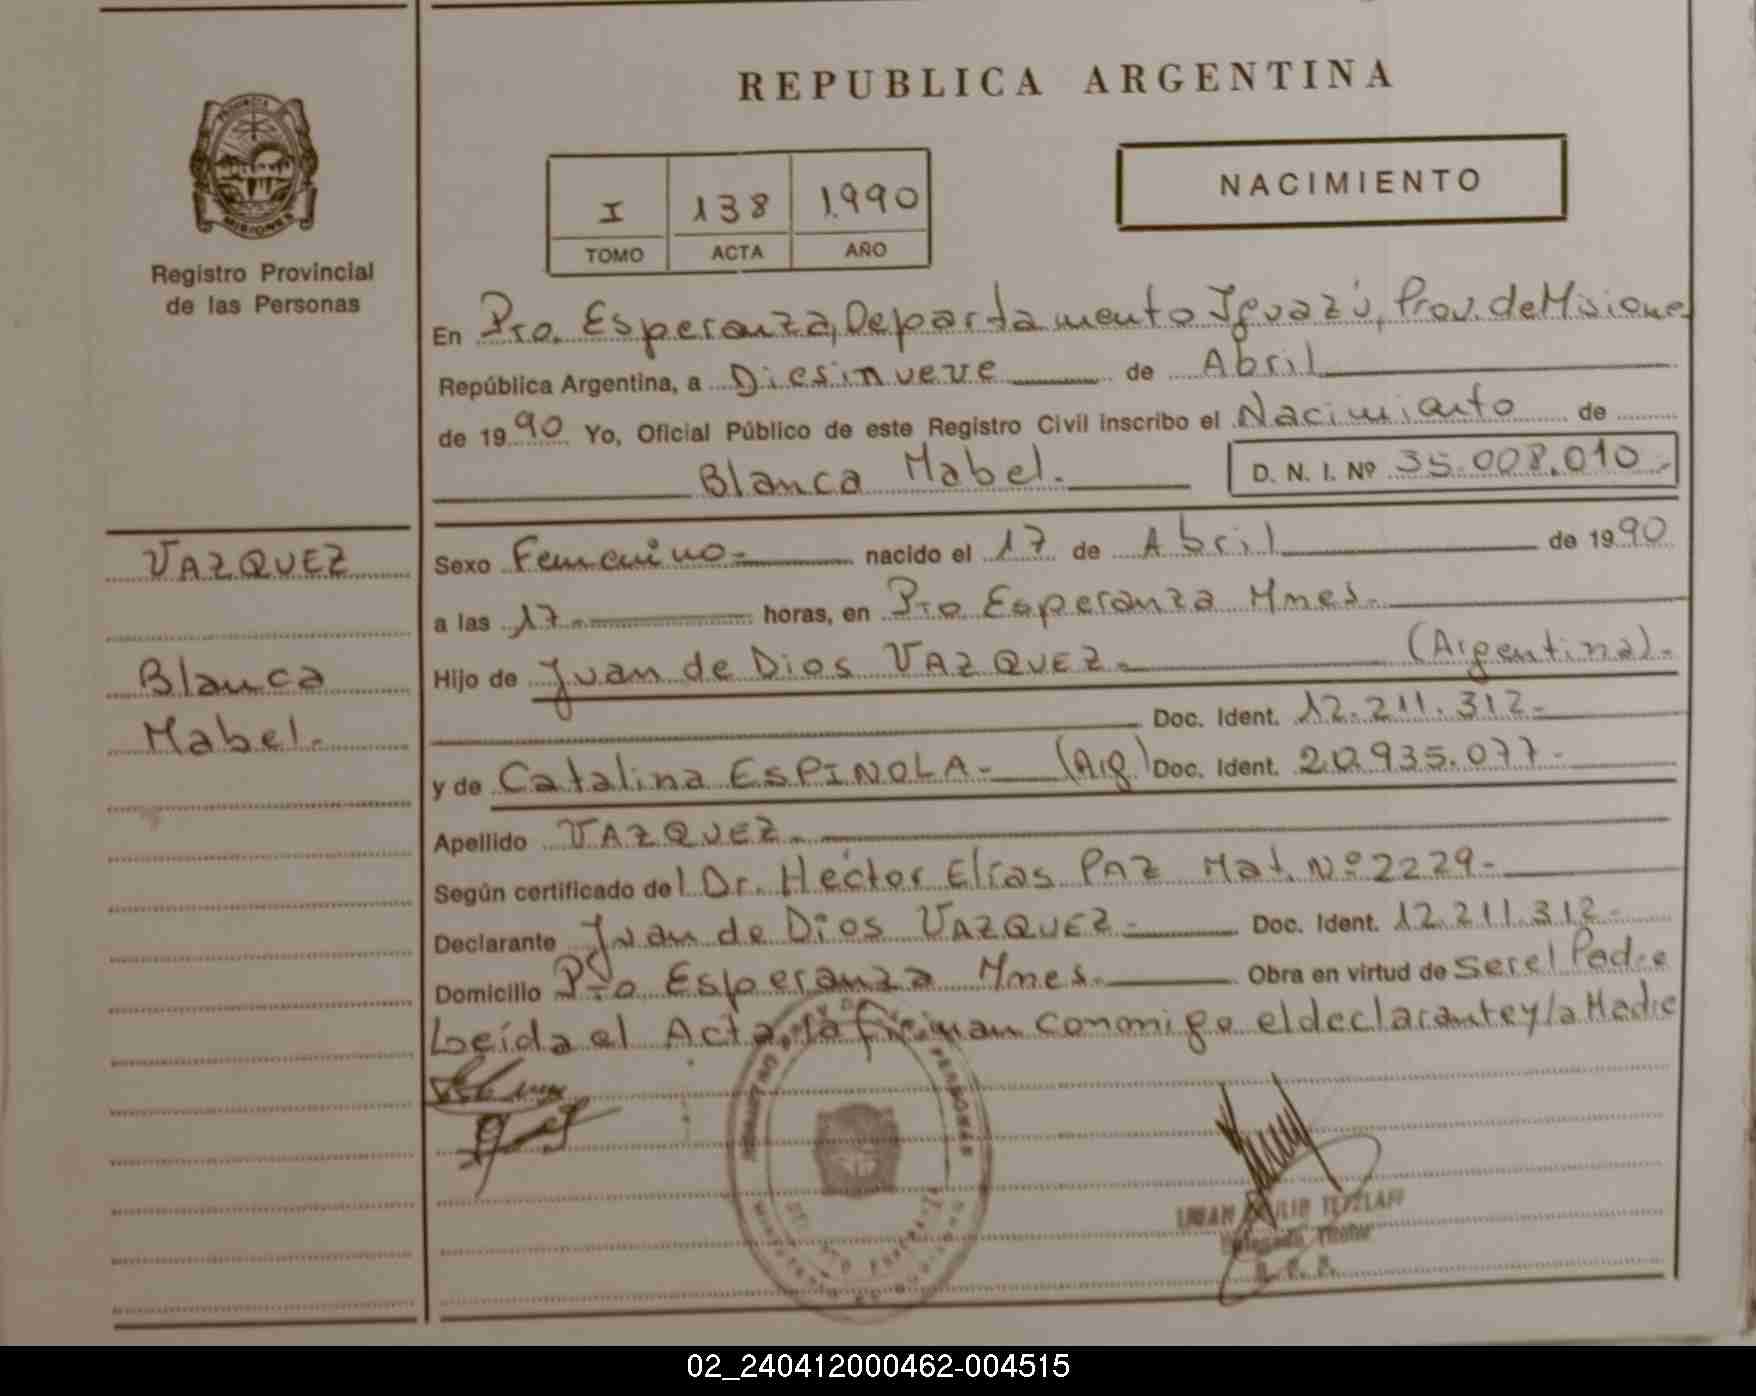 REPUBLICA ARGENTINA
PROVINCIA
MISIONES
Registro Provincial
de las Personas
I 138 1990
TOMO ACTA AÑO
NACIMIENTO
En Pto. Esperanza, Departamento Iguazú, Prov. de Misiones
República Argentina, a Diesinueve de Abril
de 1990 Yo, Oficial Público de este Registro Civil inscribo el Nacimianto de
Blanca Mabel.
D. N. I. Nº 35.008.010.-
VAZQUEZ
Blanca
Mabel.-
Sexo Femenino.- nacido el 17 de Abril de 1990
a las 17.- horas, en Pto Esperanza Mnes.-
Hijo de Juan de Dios VAZQUEZ.- (Argentina).-
Doc. Ident. 12.211.312.-
y de Catalina ESPINOLA.- (Arg.) Doc. Ident. 20.935.077.-
Apellido VAZQUEZ.-
Según certificado del Dr. Héctor Elías PAZ Mat. Nº 2229.-
Declarante Juan de Dios VAZQUEZ.- Doc. Ident. 12.211.312.-
Domicilio Pto Esperanza Mnes.- Obra en virtud de ser el Padre
Leída el Acta, la firman conmigo el declarante y la Madre
PERSONAS
TETZLAFF
Titular
02_240412000462-004515